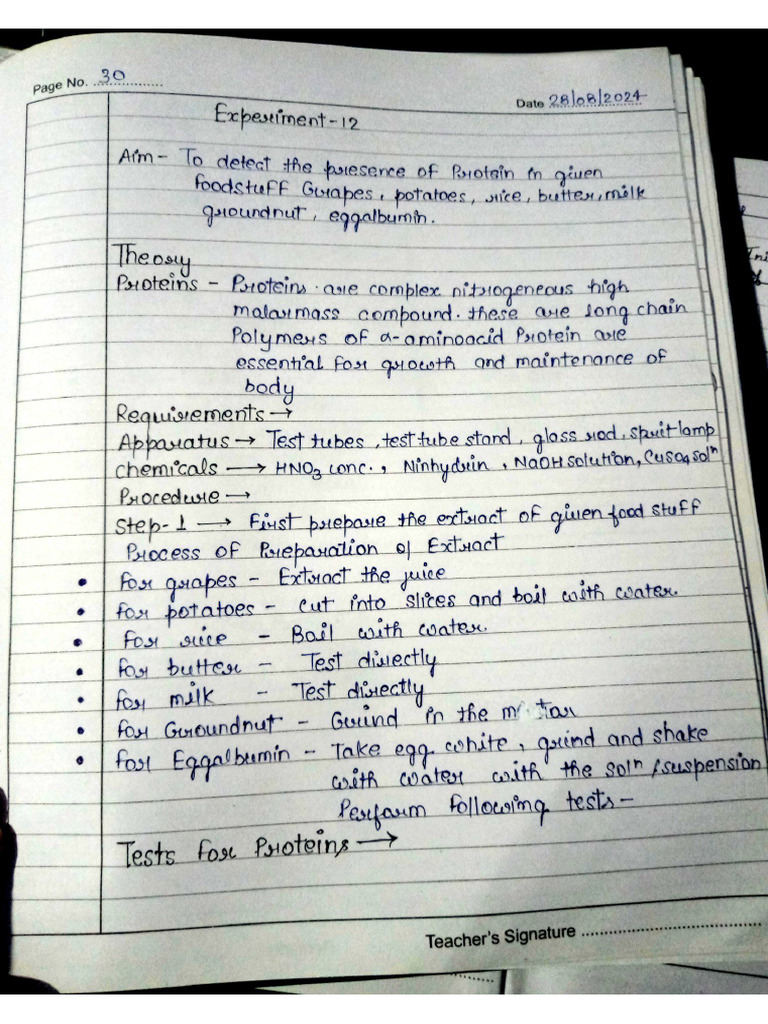 Page No. 30
Date 28/08/2024
Experiment-12
Aim - To detect the presence of Protein in given
foodstuff Grapes, potatoes, rice, butter, milk
groundnut, eggalbumin.
Theory
Proteins - Proteins are complex nitrogeneous high
malarmass compound. these are long chain
Polymers of α-aminoacid Protein are
essential for growth and maintenance of
body
Requirements →
Apparatus → Test tubes, test tube stand, glass rod, spirit lamp
Chemicals → HNO3 conc., Ninhydrin, NaOH solution, CuSO4 solⁿ
Procedure →
Step-1 → First prepare the extract of given food stuff
Process of Preparation of Extract
• for grapes - Extract the juice
• for potatoes - cut into slices and boil with water.
• for rice - Boil with water.
• for butter - Test directly
• for milk - Test directly
• for Groundnut - Grind in the
• for Eggalbumin - Take egg white, grind and shake
with water with the solⁿ/suspension
Perform following tests -
Tests for Proteins →
Teacher's Signature